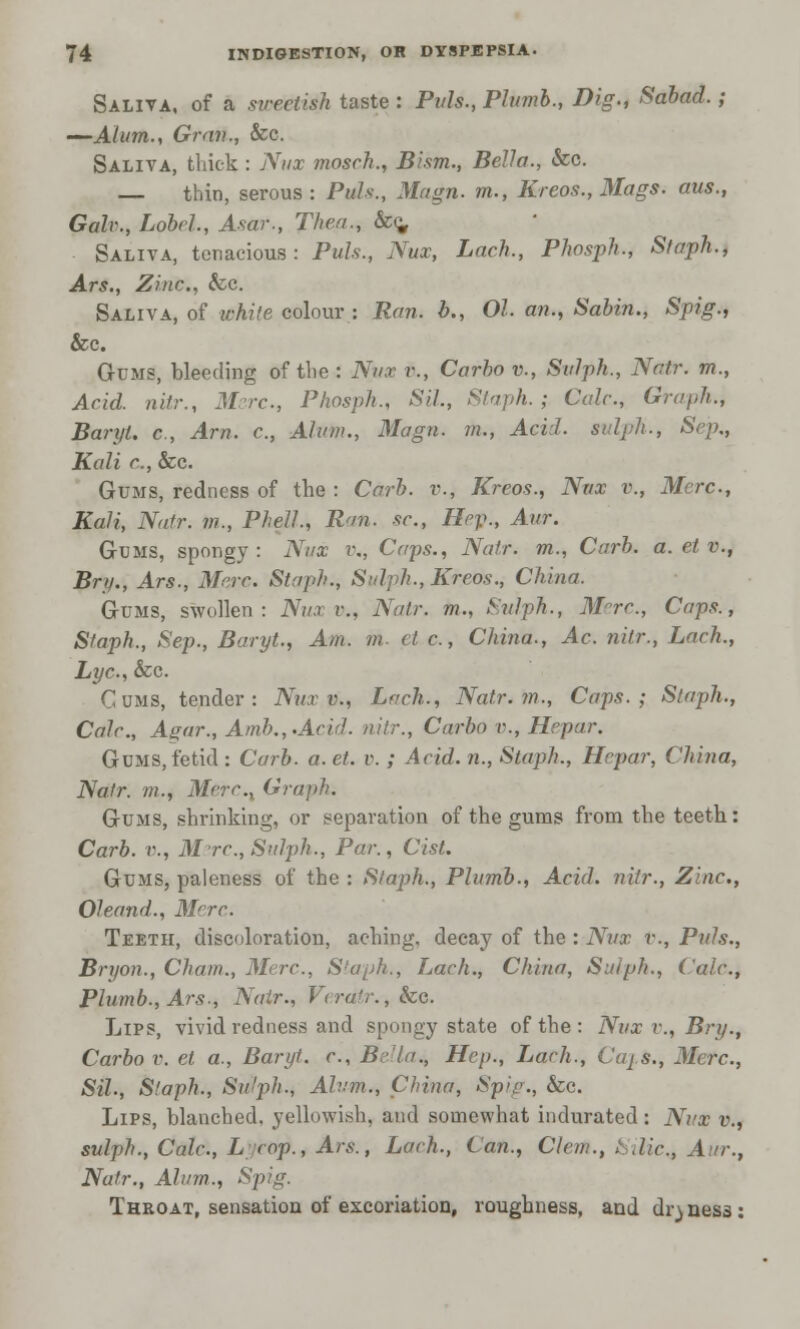 74 INDIGESTION, OR DYSPEPSIA.
SALIVA, of a sweetish taste : Puls., Plumb., Dig., Sabad. ;
—Alum., Gran., &c.
SALIVA, thick : Nux mosch., Bism., Bella., &c.
— thin, serous : Puls., Magn. m., Kreos., Mags. aus.,
Galv., Lobel., Asar., Thea., &c.
SALIVA, tenacious : Puls., Nux, Lach., Phosph., Staph.,
Ars., Zinc., &c.
SALIVA, of white colour : Ran. b., Ol. an., Sabin., Spig.,
&c.
GUMS, bleeding of the : Nux v., Carbo v., Sulph., Natr. m.,
Acid. nitr., Merc., Phosph., Sil., Staph. ; Calc., Graph.,
Baryt. c., Arn. c., Alum., Magn. m., Acid. sulph., Sep.,
Kali c., &c.
GUMS, redness of the : Carb. v., Kreos., Nux v., Merc.,
Kali, Natr. m., Phell., Ran. sc., Hep., Aur.
GUMS, spongy : Nux v., Caps., Natr. m., Carb. a. et v.,
Bry., Ars., Merc. Staph., Sulph., Kreos., China.
GUMS, swollen : Nux v., Natr. m., Sulph., Merc., Caps.,
Staph., Sep., Baryt., Am. m. et c., China., Ac. nitr., Lach.,
Lyc., &c.
GUMS, tender : Nux v., Lach., Natr. m., Caps. ; Staph.,
Calc., Agar., Amb., Acid. nitr., Carbo v., Hepar.
GUMS, fetid : Carb. a. et. v. ; Acid. n., Staph., Hepar, China,
Natr. m., Merc., Graph.
GUMS, shrinking, or separation of the gums from the teeth :
Carb. v., Merc., Sulph., Par., Cist.
GUMS, paleness of the : Staph., Plumb., Acid. nitr., Zinc.,
Oleand., Merc.
TEETH, discoloration, aching, decay of the : Nux v., Puls.,
Bryon., Cham., Merc., Staph., Lach., China, Sulph., Calc.,
Plumb., Ars., Natr., Veratr., &c.
LIPS, vivid redness and spongy state of the : Nux v., Bry.,
Carbo v. et a., Baryt. c., Bella., Hep., Lach., Caps., Merc.,
Sil., Staph., Sulph., Alum., China, Spig., &c.
LIPS, blanched, yellowish, and somewhat indurated : Nux v.,
sulph., Calc., Lycop., Ars., Lach., Can., Clem., Silic., Aur.,
Natr., Alum., Spig.
THROAT, sensation of excoriation, roughness, and dryness :